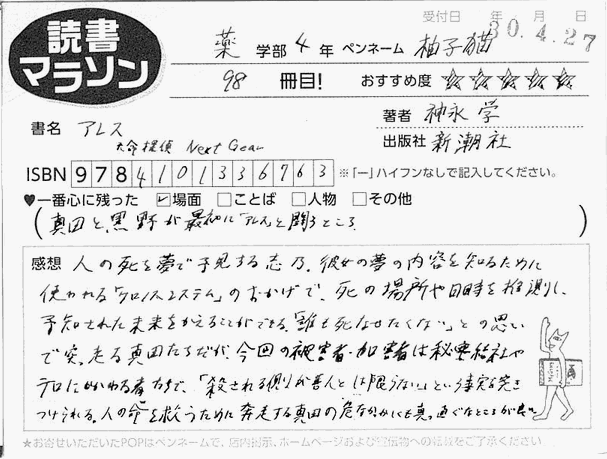 受付日 年 月 日
30.4.27
読書
マラソン
薬 学部 4 年 ペンネーム 柚子猫
98 冊目! おすすめ度 ☆☆☆☆☆
書名 アレス
天命探偵 Next Gear
著者 神永 学
出版社 新潮社
ISBN 9784101336763 ※「ー」ハイフンなしで記入してください。
♥一番心に残った ☑場面 □ことば □人物 □その他
(真田と、黒野が最初に「アレス」と闘うところ)
感想 人の死を夢で予見する志乃。彼女の夢の内容を知るために
使われる「クロノスシステム」のおかげで、死の場所や日時を推測し、
予知された未来をかえることができる。「誰も死なせたくない」との思い
で突っ走る真田たちだが、今回の被害者・加害者は秘密結社や
テロにかかわる者たちで、「殺される側が善人とは限らない」という事実を突き
つけられる。人の命を救うために奔走する真田の危なかしいにも真っ直ぐなところが
★お寄せいただいたPOPはペンネームで、店内掲示、ホームページおよび宣伝物への転載をご了承ください